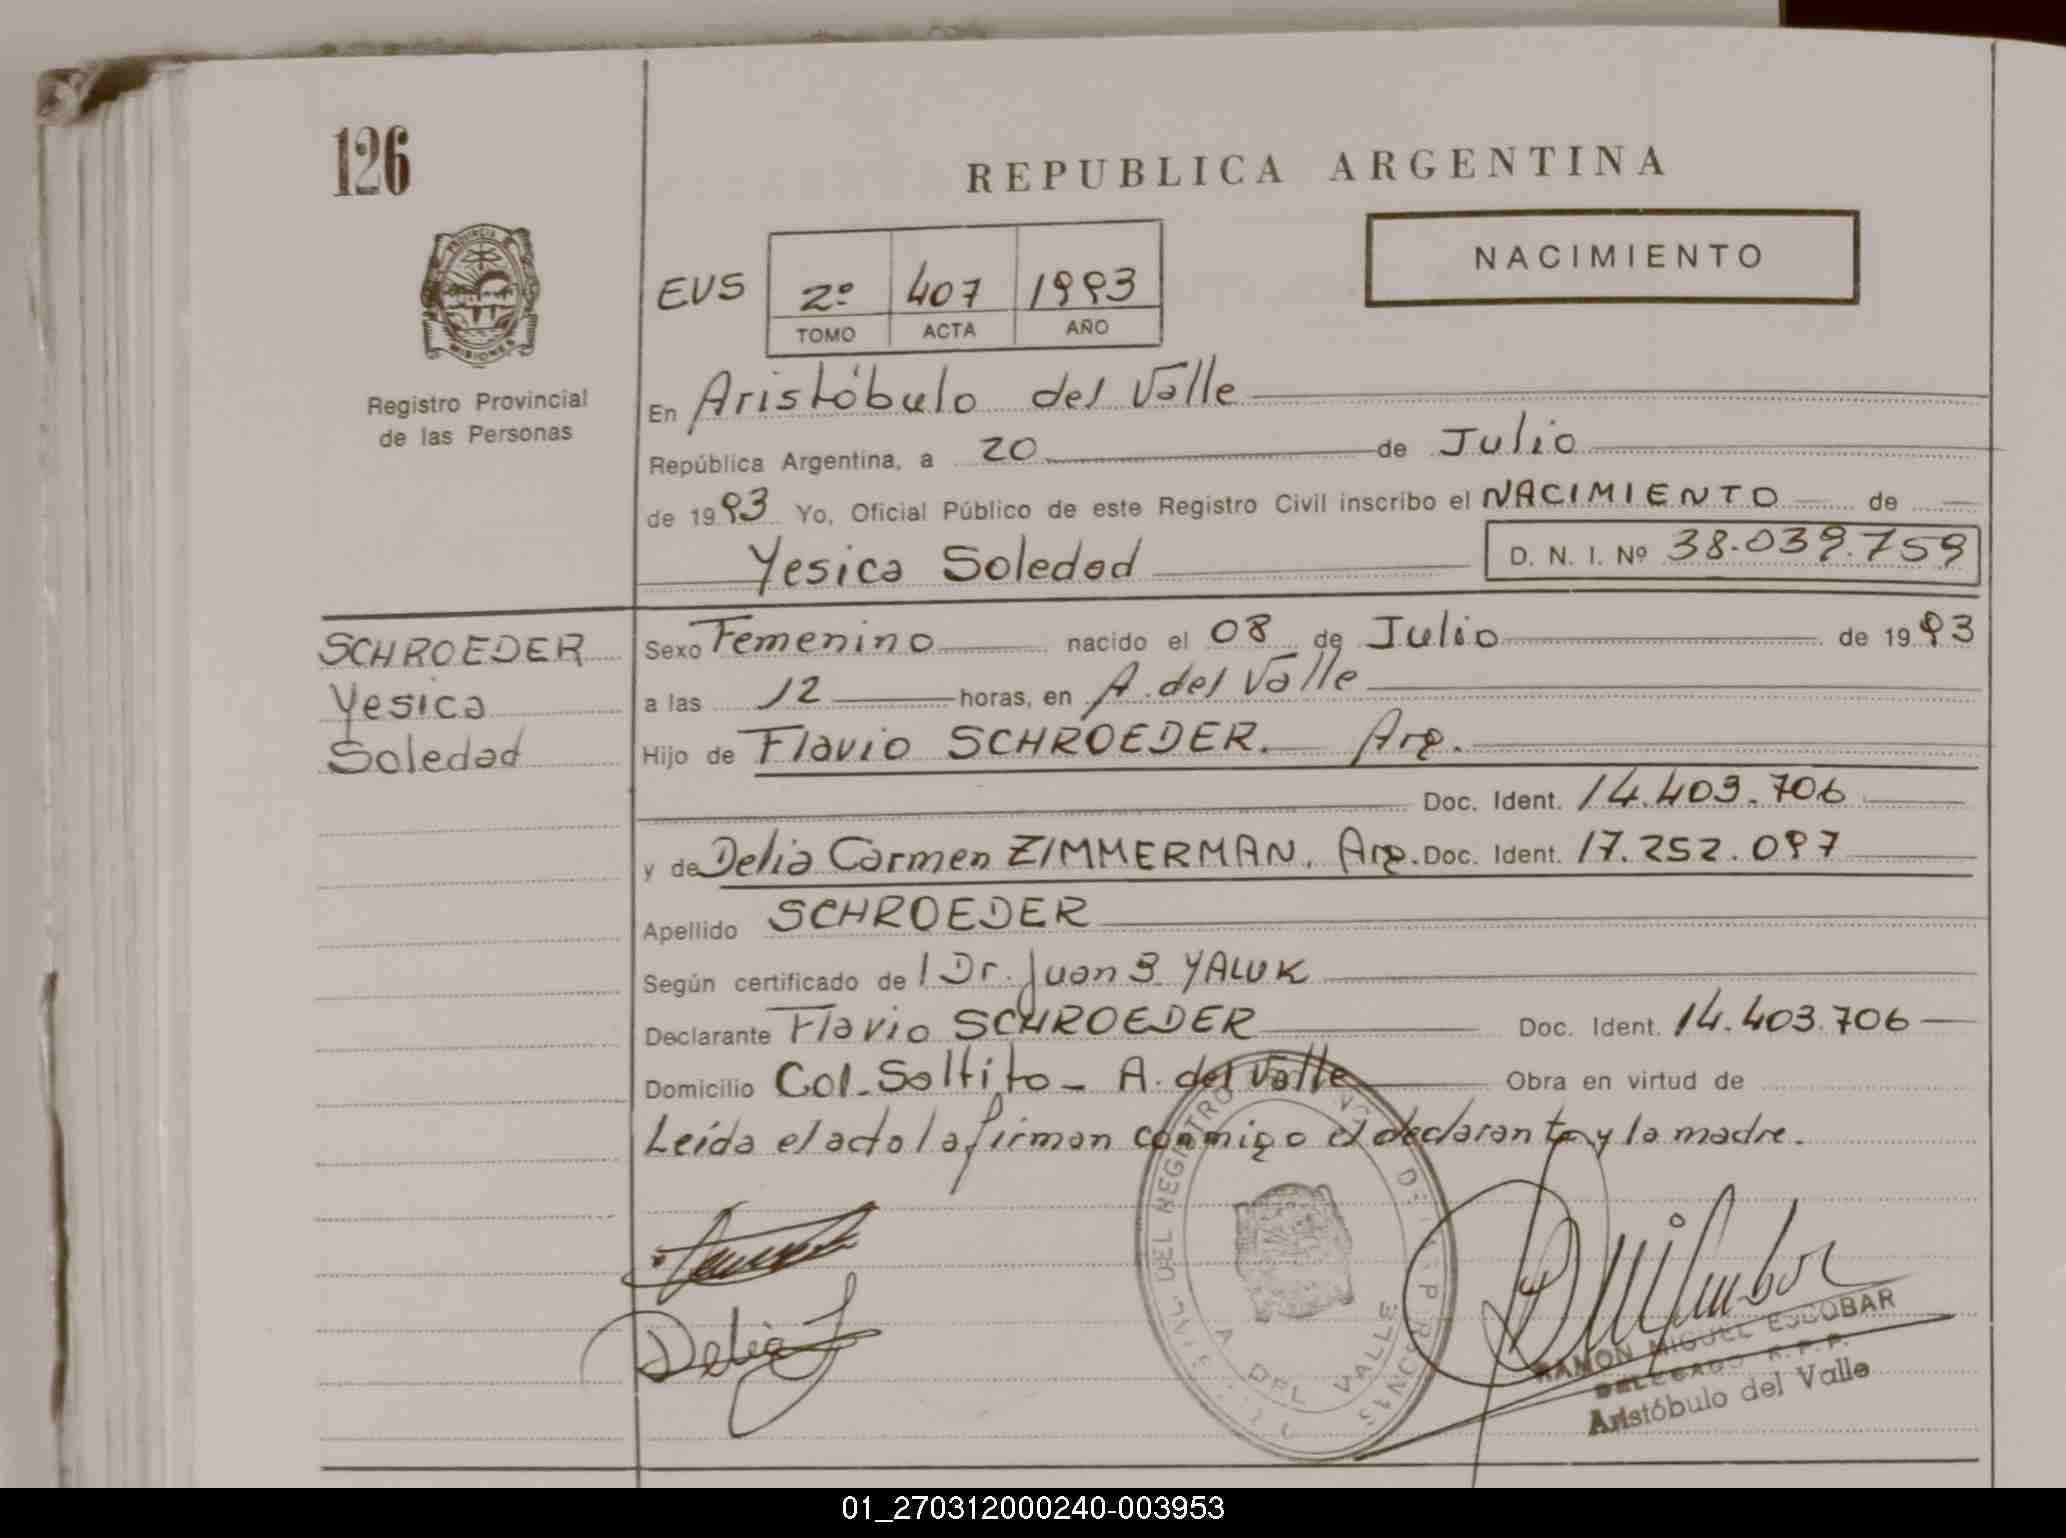 126
REPUBLICA ARGENTINA
PROVINCIA
MISIONES
NACIMIENTO
EVS 2º 407 1993
TOMO ACTA AÑO
Registro Provincial
de las Personas
En Aristóbulo del Valle
República Argentina, a 20 de Julio
de 1993 Yo, Oficial Público de este Registro Civil inscribo el NACIMIENTO de
Yesica Soledad D. N. I. Nº 38.039.759
SCHROEDER
Yesica
Soledad
Sexo Femenino nacido el 08 de Julio de 1993
a las 12 horas, en A. del Valle
Hijo de Flavio SCHROEDER. Arg.
Doc. Ident. 14.403.706
y de Delia Carmen ZIMMERMAN. Arg. Doc. Ident. 17.252.097
Apellido SCHROEDER
Según certificado de l Dr. Juan B YALUK
Declarante Flavio SCHROEDER Doc. Ident. 14.403.706
Domicilio Col. Saltito - A. del Valle Obra en virtud de
Leída el acta la firman conmigo el declarante y la madre.
DEL REGISTRO
A. DEL VALLE
Delia
RAMON MIGUEL ESCOBAR
DELEGADO R.P.P.
Aristóbulo del Valle
01_270312000240-003953